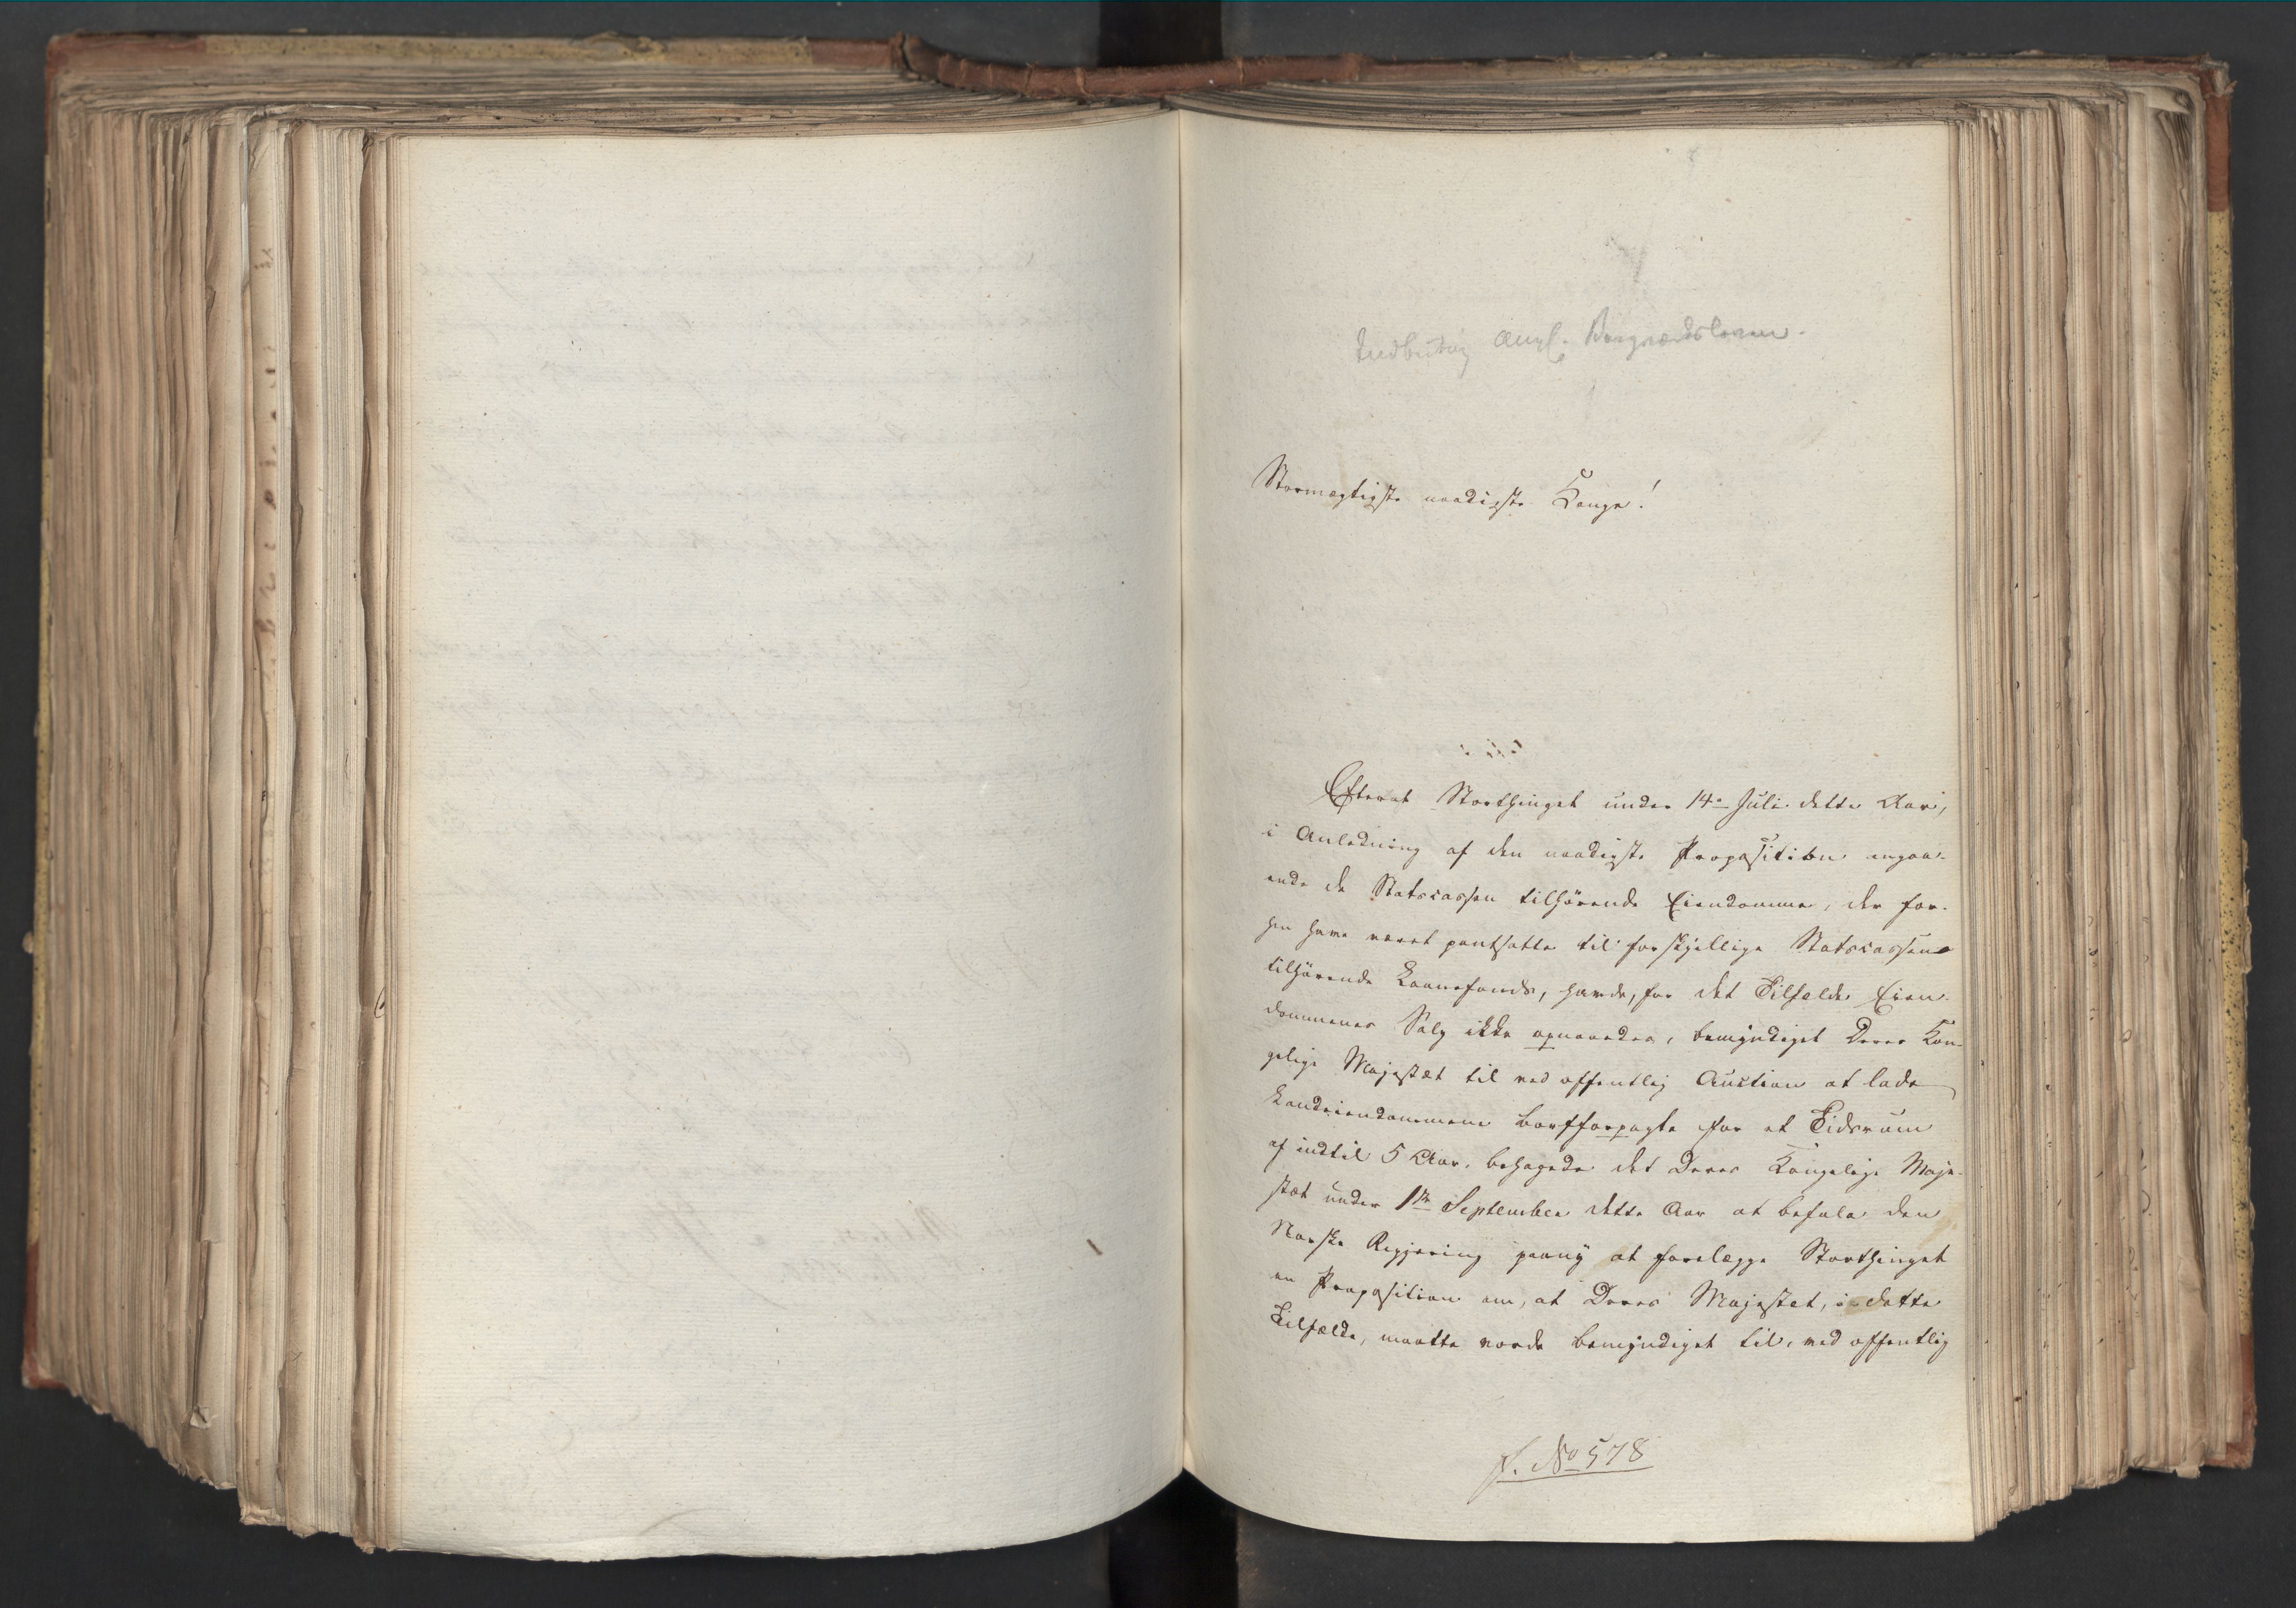 Stormægtigste naadigste Konge!
Efterat Storthinget under 14de Juli dette Aar,
i Anledning af den naadigste Proposition angaa-
ende de Statscassen tilhörende Eiendomme, der for-
hen have været pantsatte til forskjellige Statscassen
tilhörende Laanefonds, havde, for det Tilfælde Eien-
dommenes Salg ikke opnaaedes, bemyndiget Deres Kon-
gelige Majestæt til ved offentlig Auction at lade
Landeiendommene bortforpagte for et Tidsrum
af indtil 5 Aar, behagede det Deres Kongelige Maje-
stæt under 1ste September dette Aar at befale den
Norske Regjering paany at forelægge Storthinget
en Proposition om, at Deres Majestæt, i dette
Tilfælde, maatte vorde bemyndiget til, ved offentlig
No 578